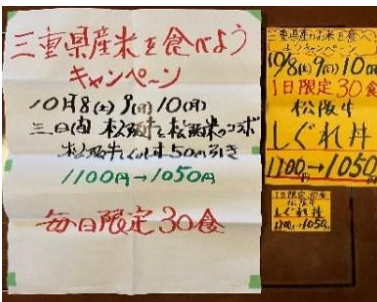 三重県産米を食べよう
キャンペーン
10月8(土)9(日)10(月)
三日間 松阪牛と松阪米のコラボ
松阪牛しぐれ丼50円引き
1100円→1050円
毎日限定30食
三重県産米を食べ
ようキャンペーン
10/8(土)9(日)10(月)
1日限定30食
松阪牛
しぐれ丼
1100→1050円
1日限定30食
松阪牛
しぐれ丼
1100→1050円